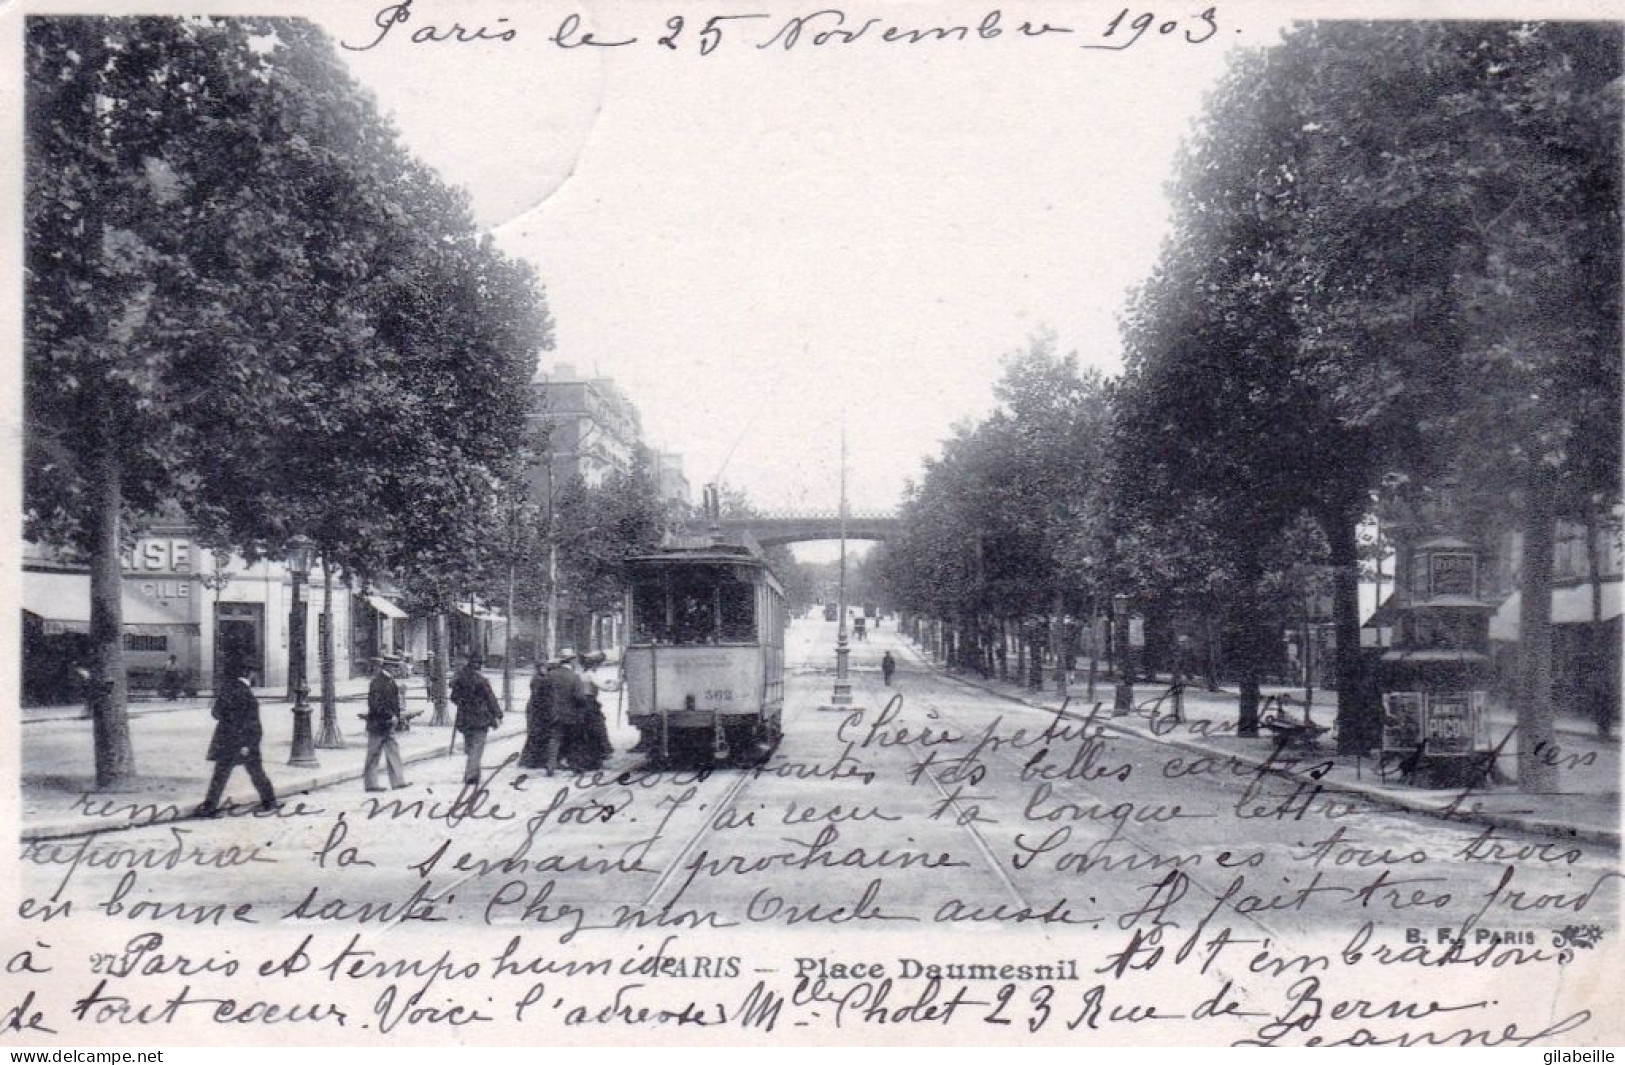 Paris le 25 Novembre 1903.
RISE
562
PICON
Chère petite Tante
Je reçois toutes tes belles cartes et t'en
remercie, mille fois. J'ai reçu ta longue lettre te
repondrai la semaine prochaine Sommes tous trois
en bonne santé. Chez mon Oncle aussi. Il fait tres froid
B. F., PARIS
à Paris et temps humide Ns t'embrassons
27 PARIS - Place Daumesnil
de tout cœur. Voici l'adresse Mlle Cholet 23 Rue de Berne.
Jeanne
delcampe.net
gilabeille